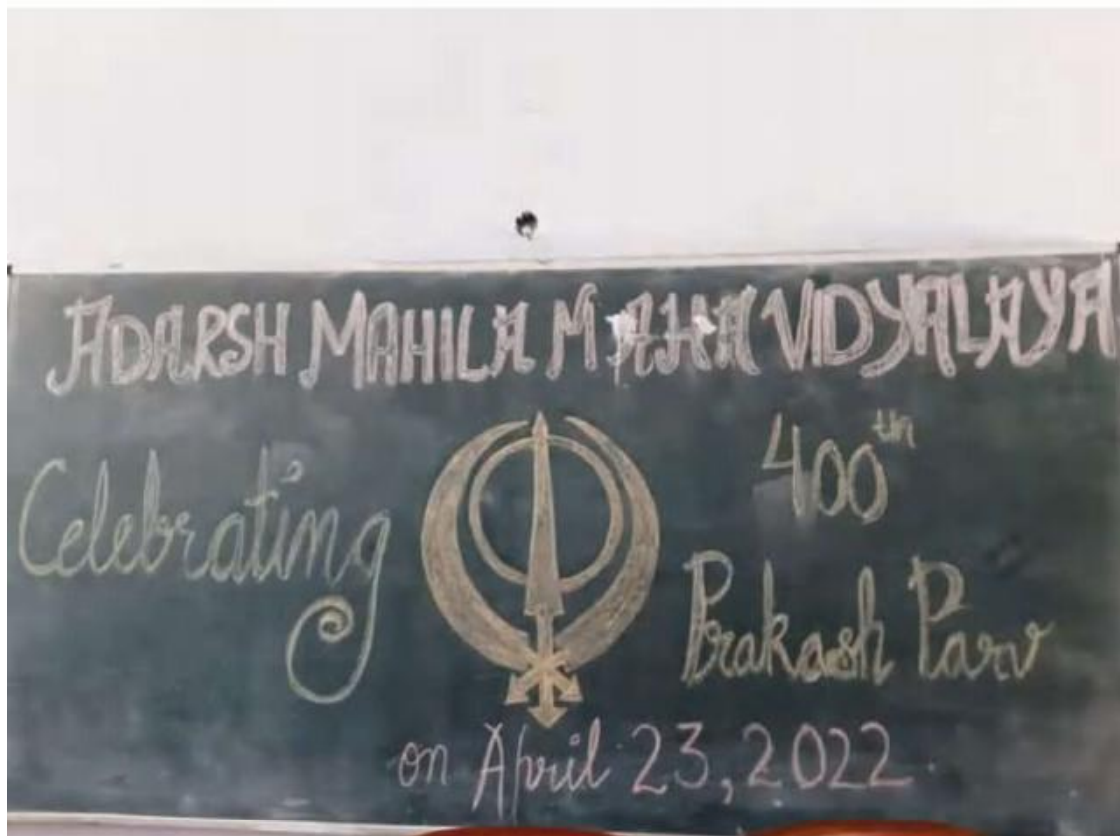 ADARSH MAHILA MAHA VIDYALAYA
Celebrating
400th
Prakash Parv
on April 23, 2022